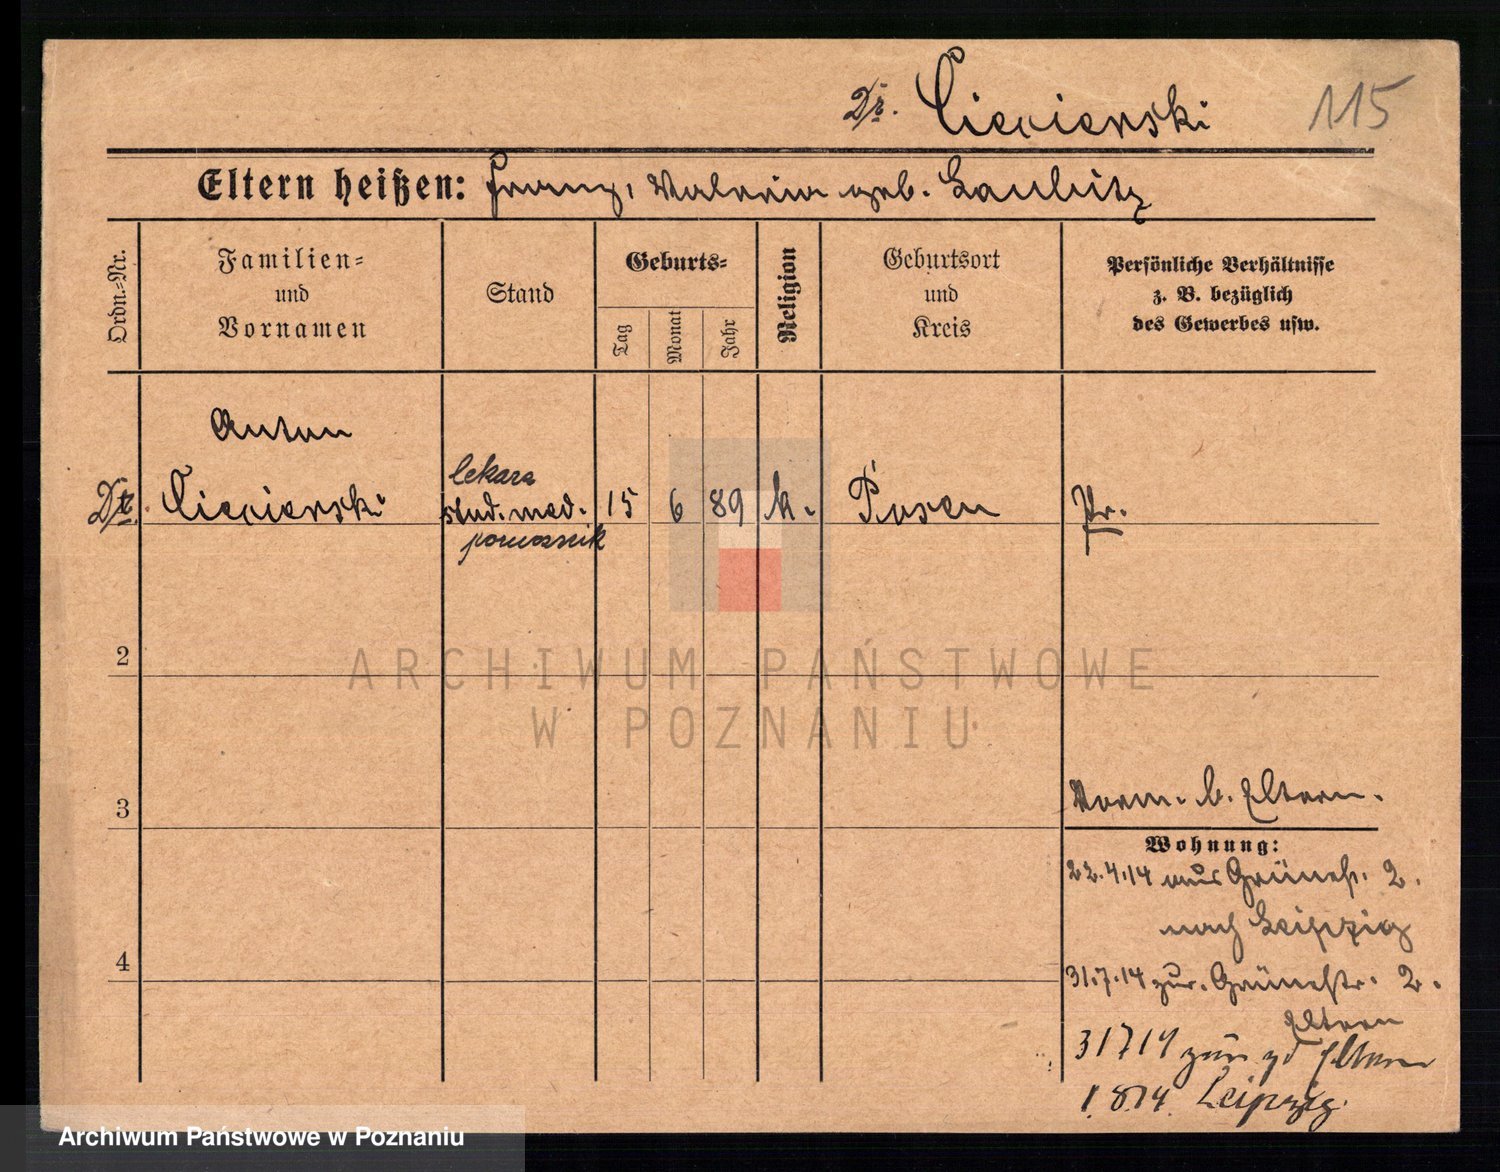 Dr. Ciecierski 115
Eltern heißen: Franz, Valeria geb. Laubitz
Ordn.-Nr.
Familien-
und
Vornamen
Stand
Geburts-
Tag
Monat
Jahr
Religion
Geburtsort
und
Kreis
Persönliche Verhältnisse
z. B. bezüglich
des Gewerbes usw.
Anton
lekarz
Dr. Ciecierski stud. med. 15 6 89 k. Posen Pr.
pomocnik
2
ARCHIWUM PAŃSTWOWE
W POZNANIU
3
Vorm. b. Eltern.
Wohnung:
22.4.14 aus Grünestr. 2.
nach Leipzig
4
31.7.14 zur. Grünestr. 2.
Eltern
31 7 14 Eltern
1. 8 14 Leipzig.
Archiwum Państwowe w Poznaniu